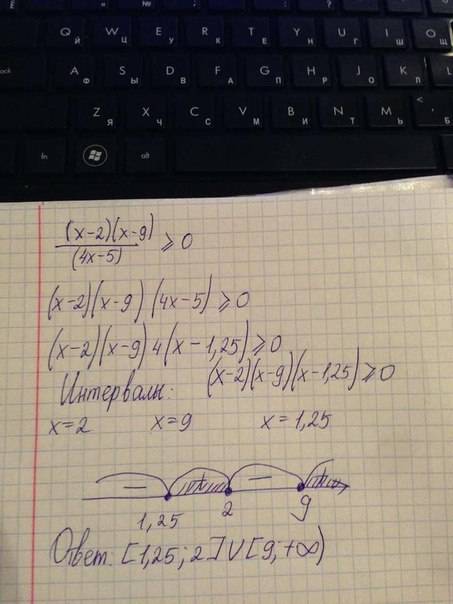 Q W E R T Y U I O
Й Ц У К Е Н Г Ш Щ
ock A S D F G H J K L
Ф Ы В А П Р О Л
Z X C V B N M <
Я Ч С М И Т Ь , Б
fn alt
(x-2)(x-9)
(4x-5) ⩾ 0
(x-2)(x-9)(4x-5) ⩾ 0
(x-2)(x-9)4(x-1,25) ⩾ 0
Интервалы: (x-2)(x-9)(x-1,25) ⩾ 0
x=2 x=9 x=1,25
- + - +
1,25 2 9
Ответ. [1,25; 2] ∪ [9; +∞)